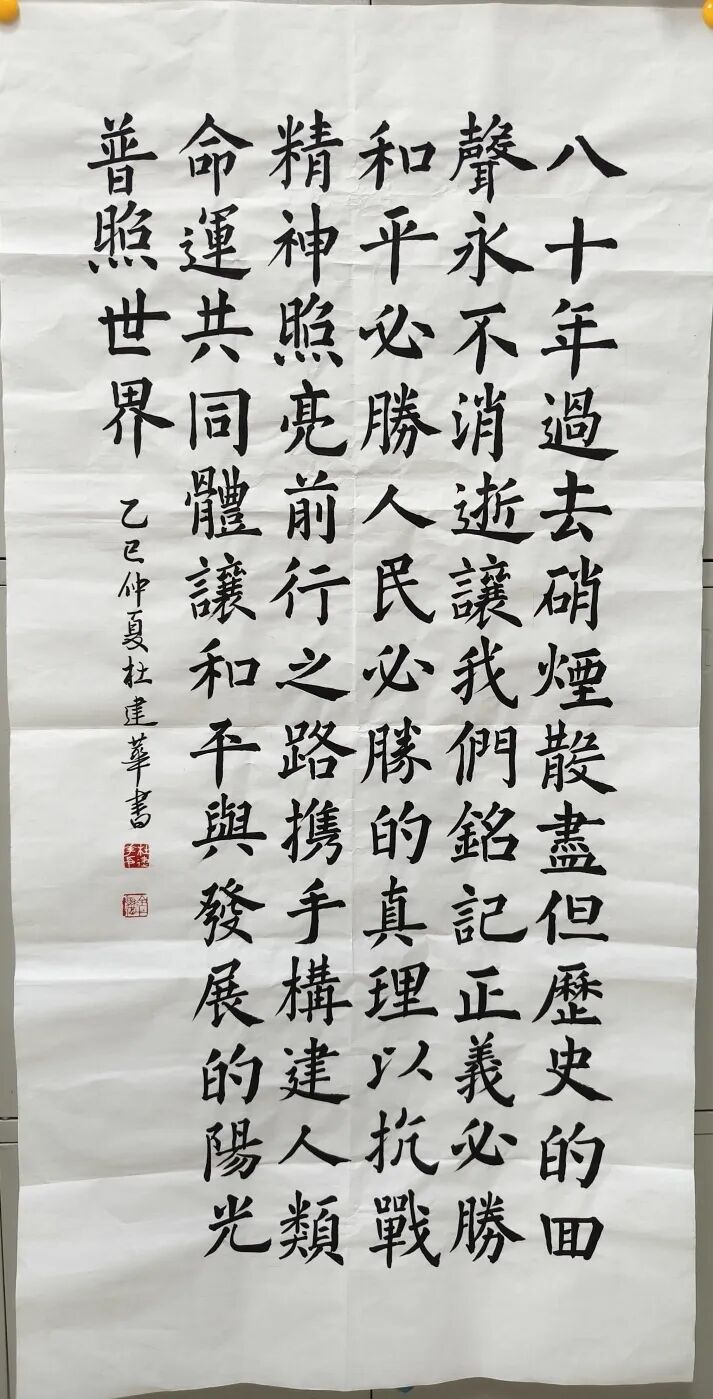 八十年過去硝煙散盡但歷史的回
聲永不消逝讓我們銘記正義必勝
和平必勝人民必勝的真理以抗戰
精神照亮前行之路携手構建人類
命運共同體讓和平與發展的陽光
普照世界
乙巳仲夏杜建華書